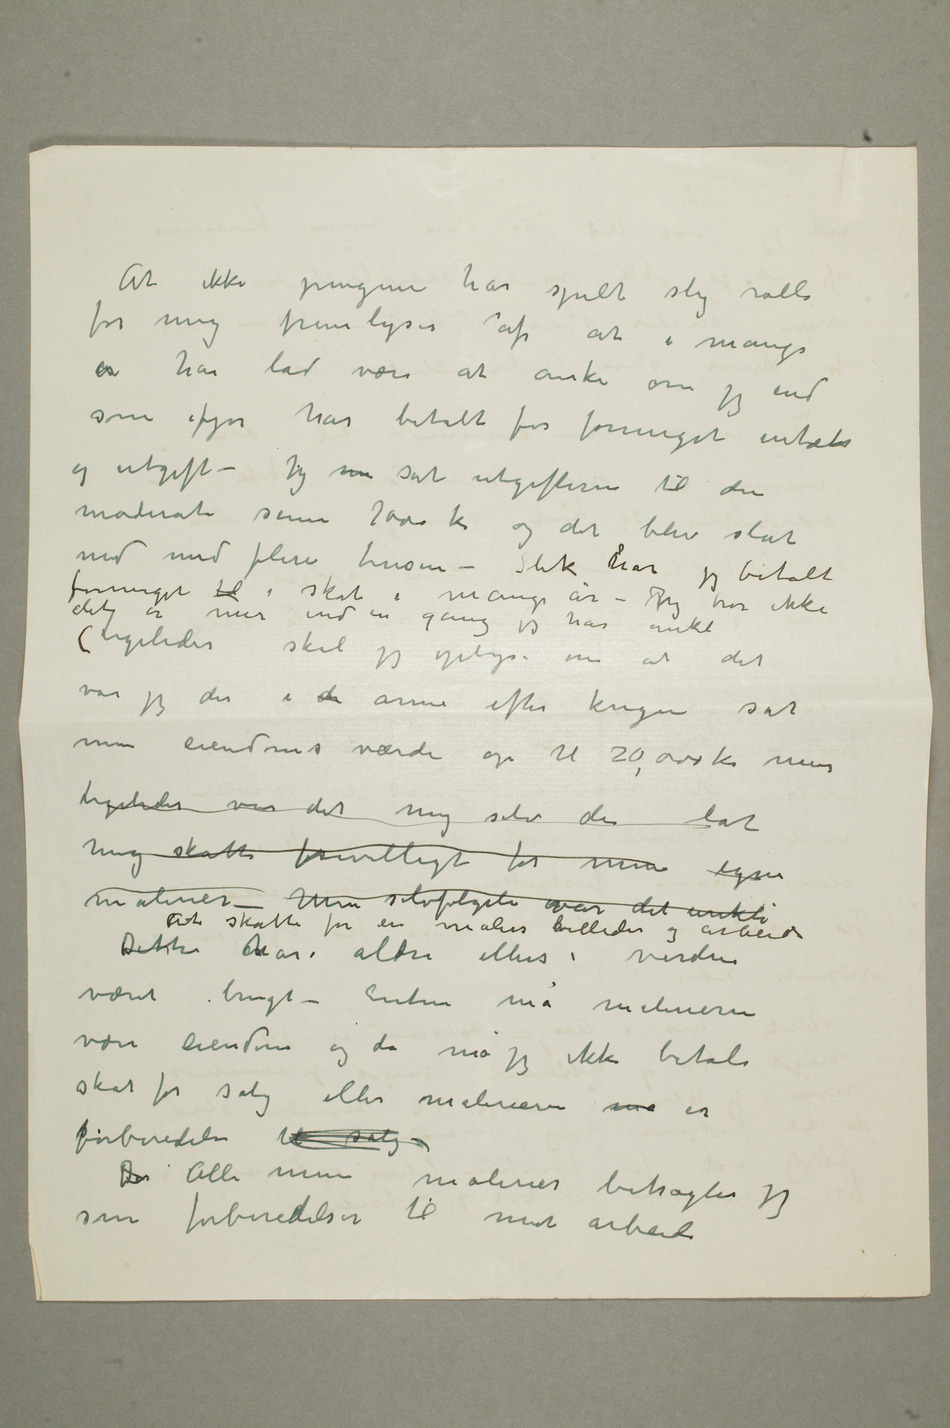 At ikke pengene har spilt slig rolle
for mig fremlyser af at i mange
år har lad være at anke om jeg end
som ifjor har betalt for forme­get intækt
og utgift – Jeg sat utgifterne til den
moderate sum 7000 kr og det blev slåt
ned med flere tusen – Slik har jeg betalt
formeget til i skat i mange år – Jeg tror ikke
det er mer end en gang jeg har anket
(Ligeledes skal jeg oplyse om at det
var jeg der i de årene efter krigen sat
min eiendoms værdi op til 20,000 kr mer
Ligeledes var det mig selv der lot
mig skatte frivilligt for mine egne
malerier – Men selvfølgeli var det
At skatte for en malers billeder og arbeide
Dette har aldri ellers i verden
været brugt – Enten må malerierne
være eiendom og da må jeg ikke betale
skat for salg eller malerierne må er
forberedelse til salg –
Da Alle mine malerier betragter jeg
som forberedelser til mit arbeid